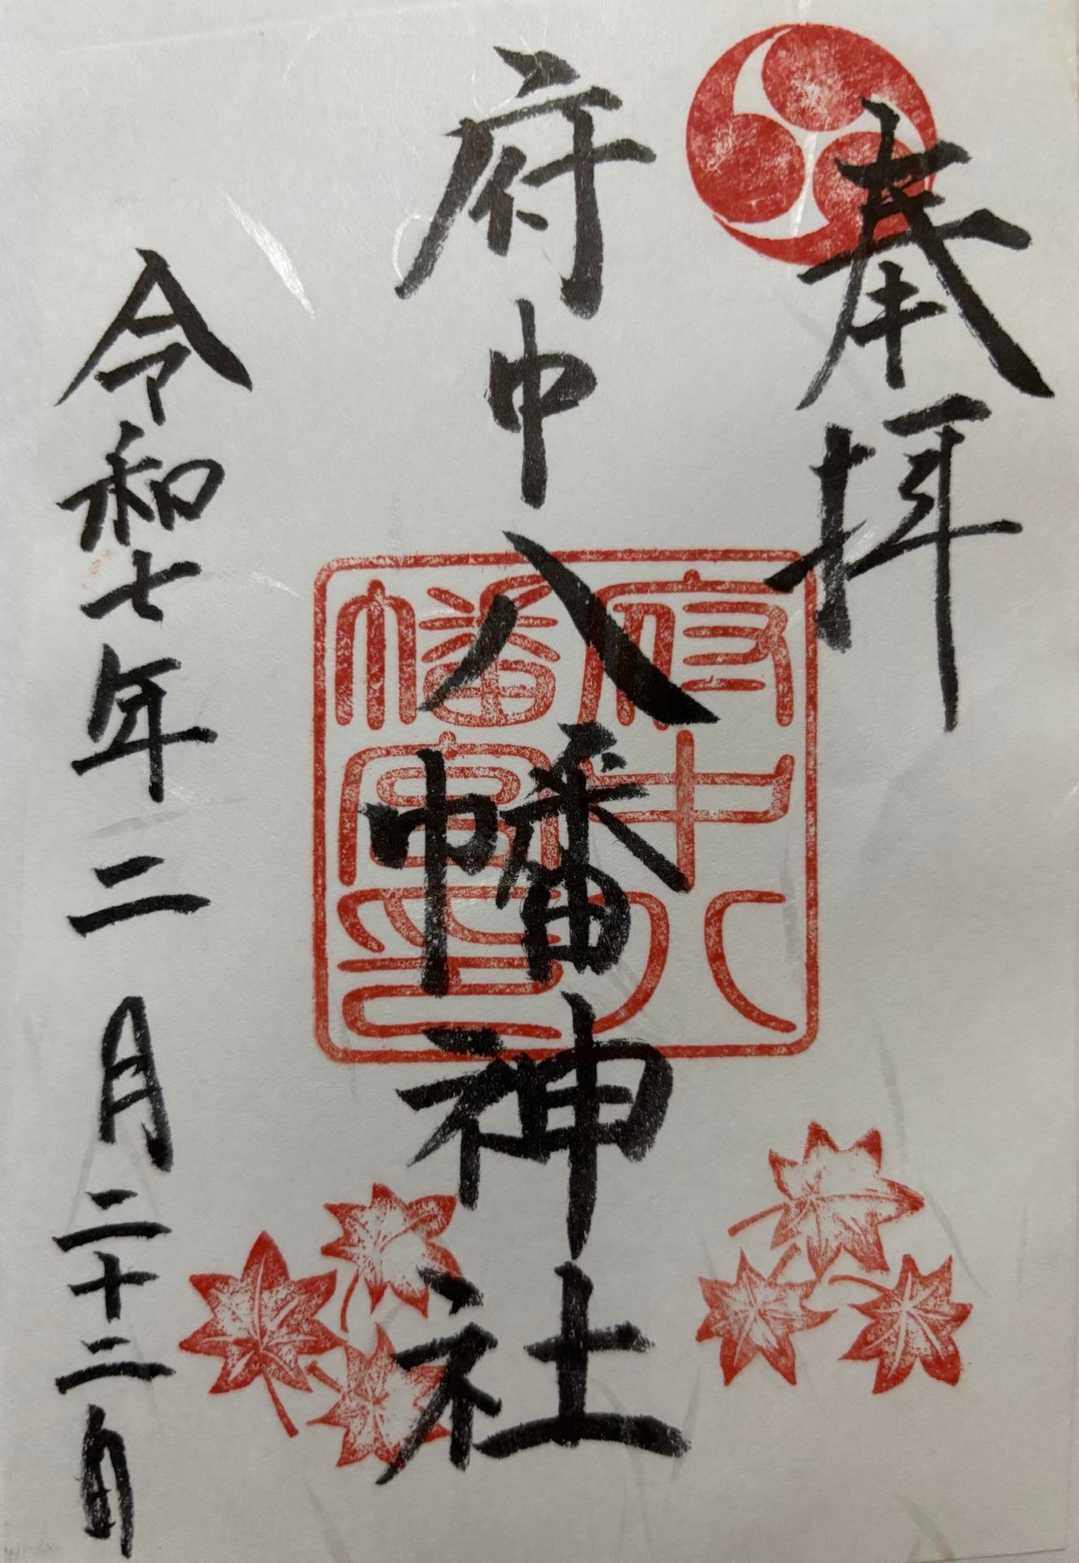 奉拝
府中八幡神社
府中八
幡宮印
令和七年二月二十二日